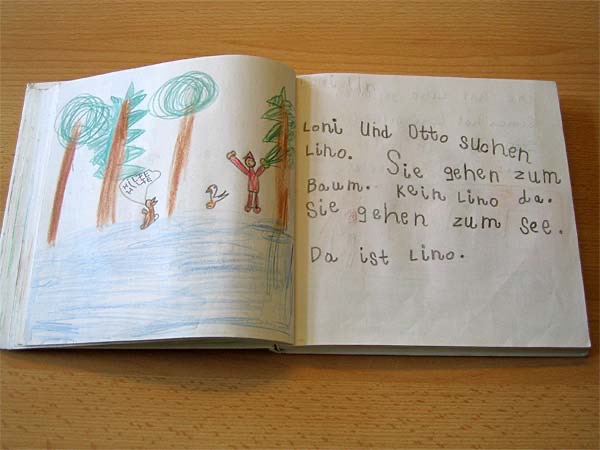 HILFE
HILFE
Loni und Otto suchen
Lino. Sie gehen zum
Baum. Kein Lino da.
Sie gehen zum See.
Da ist Lino.